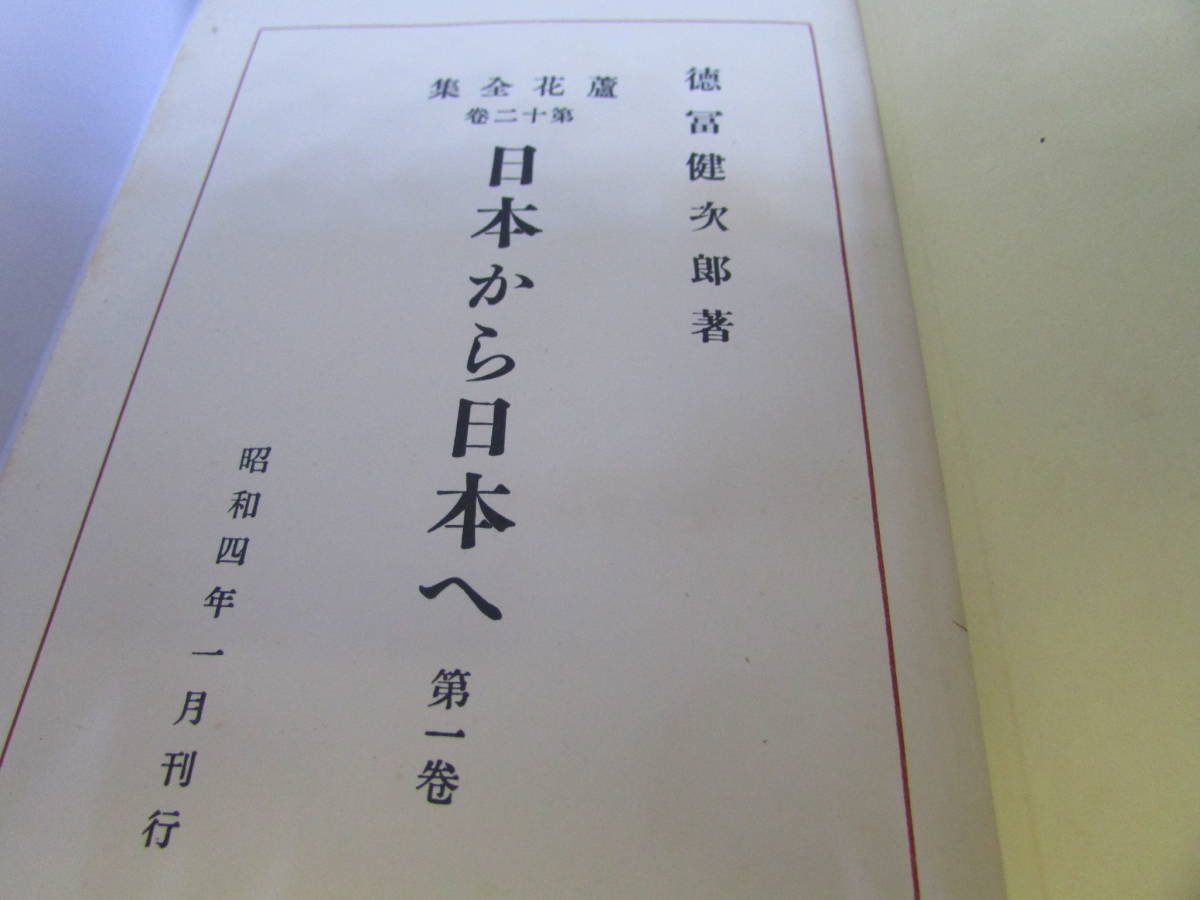 德冨健次郎著
蘆花全集
第十二卷
日本から日本へ 第一卷
昭和四年一月刊行